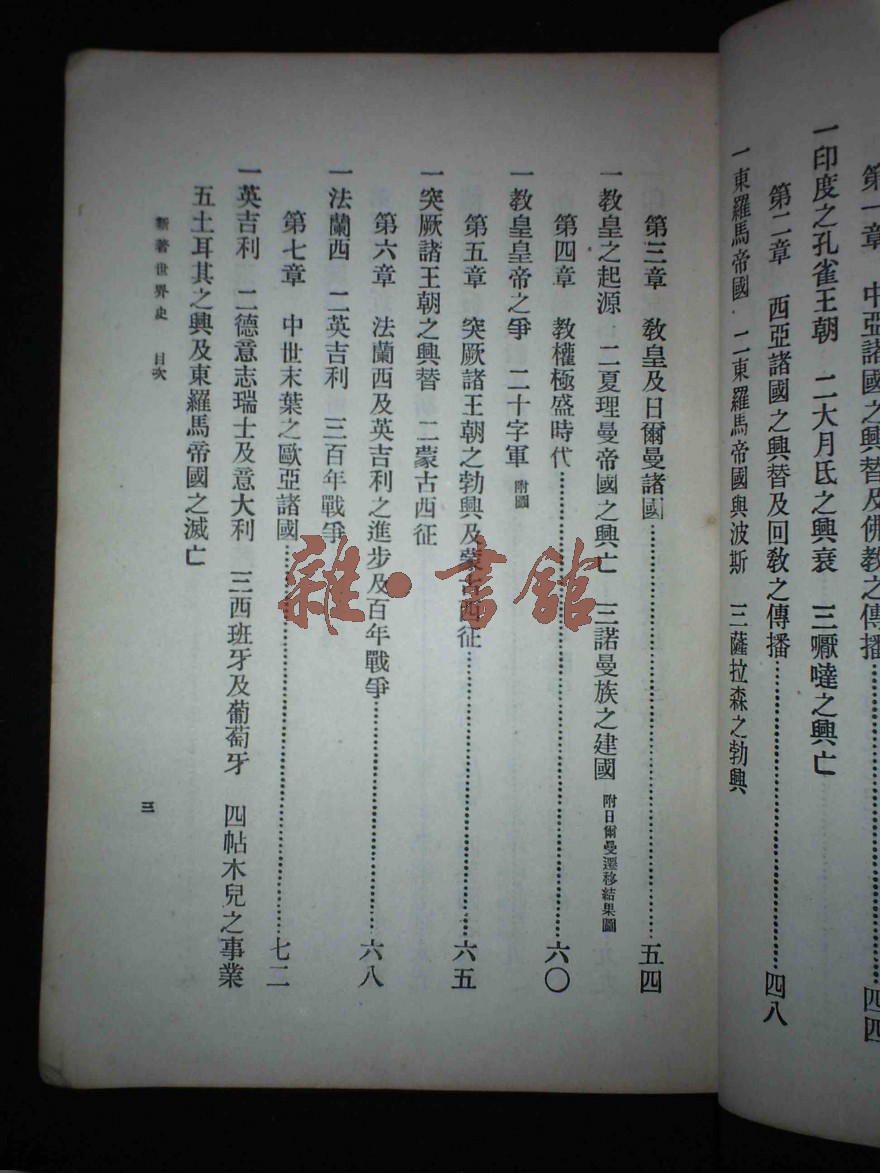 第一章　中亞諸國之興替及佛教之傳播……四四
一印度之孔雀王朝　二大月氏之興衰　三嚈噠之興亡
第二章　西亞諸國之興替及回教之傳播……四八
一東羅馬帝國　二東羅馬帝國與波斯　三薩拉森之勃興
第三章　教皇及日爾曼諸國……五四
一教皇之起源　二夏理曼帝國之興亡　三諾曼族之建國　附日爾曼遷移結果圖
第四章　教權極盛時代……六〇
一教皇皇帝之爭　二十字軍　附圖
第五章　突厥諸王朝之勃興及蒙古西征……六五
一突厥諸王朝之興替　二蒙古西征
第六章　法蘭西及英吉利之進步及百年戰爭……六八
一法蘭西　二英吉利　三百年戰爭
第七章　中世末葉之歐亞諸國……七二
一英吉利　二德意志瑞士及意大利　三西班牙及葡萄牙　四帖木兒之事業
五土耳其之興及東羅馬帝國之滅亡
新著世界史　目次
三
雜·書館